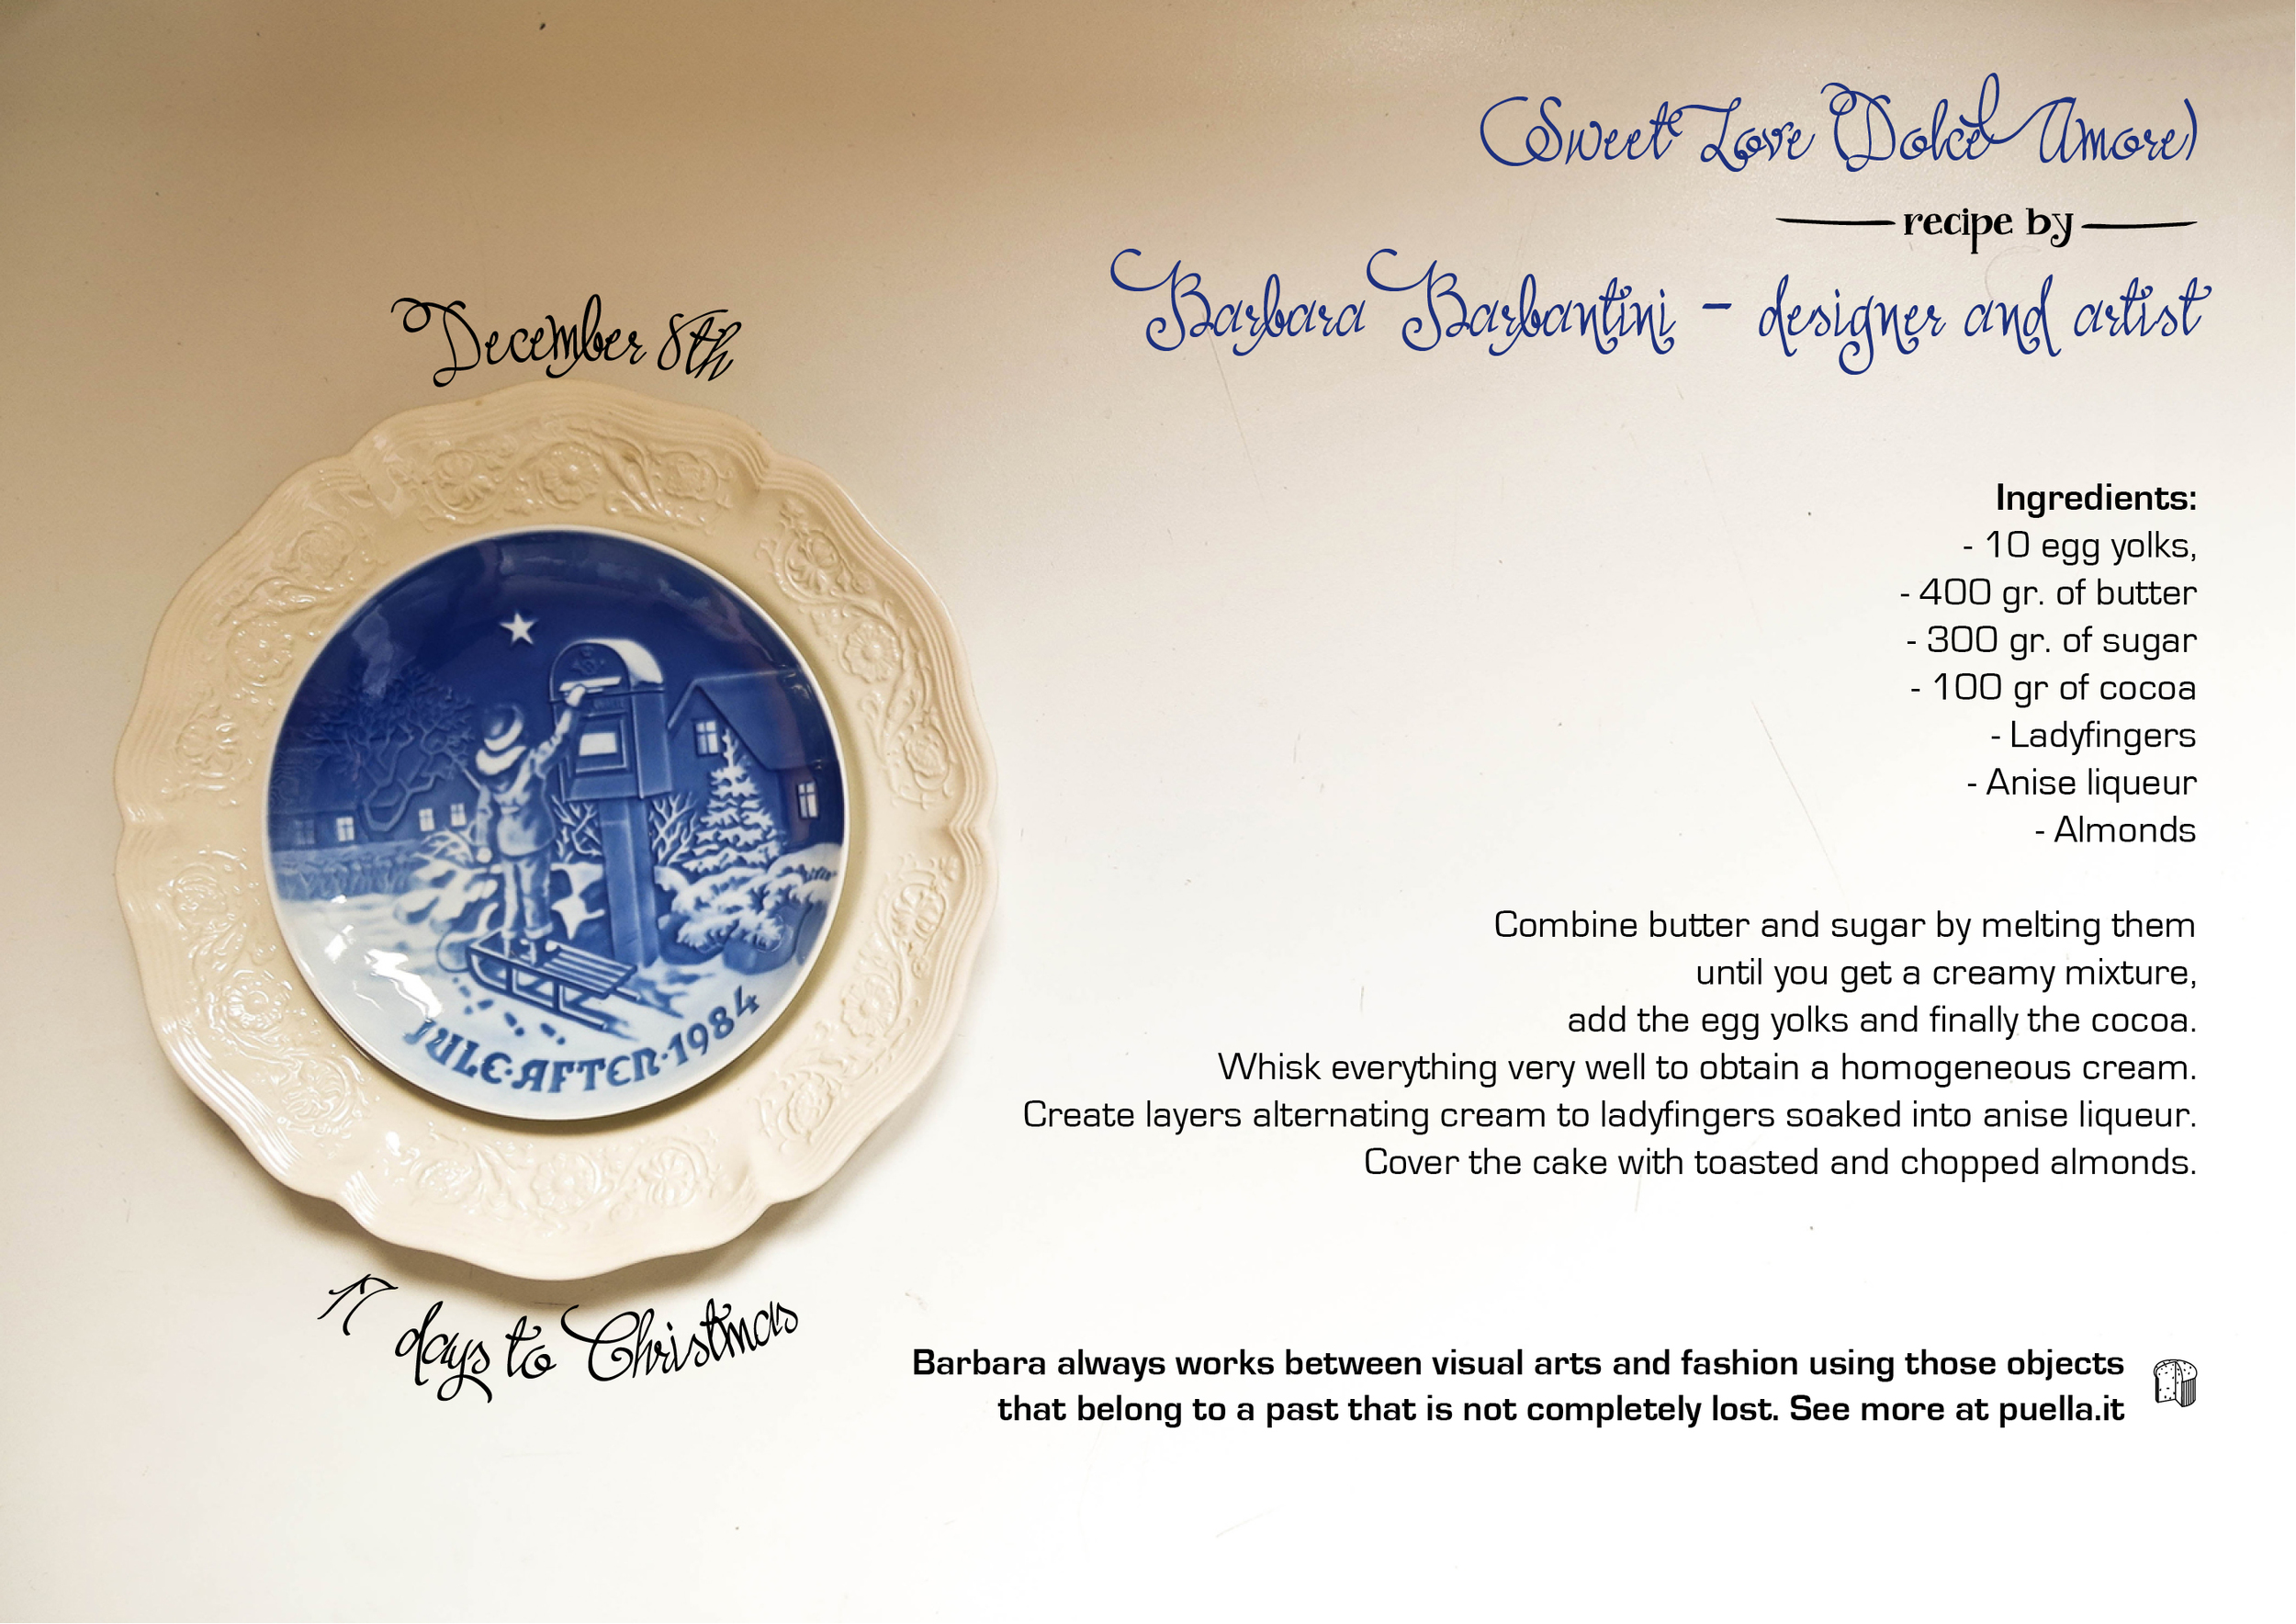 December 8th
JULE·AFTEN·1984
17 days to Christmas
Sweet Love (Dolce Amore)
recipe by
Barbara Barbantini - designer and artist
Ingredients:
- 10 egg yolks,
- 400 gr. of butter
- 300 gr. of sugar
- 100 gr of cocoa
- Ladyfingers
- Anise liqueur
- Almonds
Combine butter and sugar by melting them
until you get a creamy mixture,
add the egg yolks and finally the cocoa.
Whisk everything very well to obtain a homogeneous cream.
Create layers alternating cream to ladyfingers soaked into anise liqueur.
Cover the cake with toasted and chopped almonds.
Barbara always works between visual arts and fashion using those objects
that belong to a past that is not completely lost. See more at puella.it